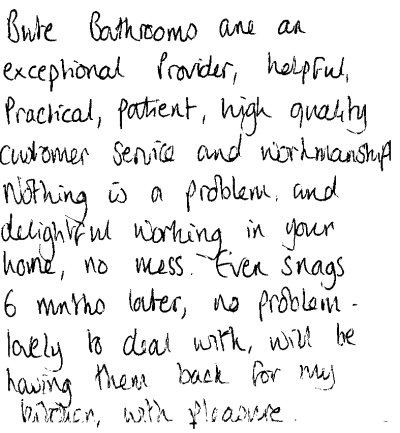 Bute Bathrooms are an
exceptional Provider, helpful,
Practical, patient, high quality
customer service and workmanship
Nothing is a problem, and
delightful working in your
home, no mess. Even snags
6 mnths later, no problem -
lovely to deal with, will be
having them back for my
kitchen, with pleasure.